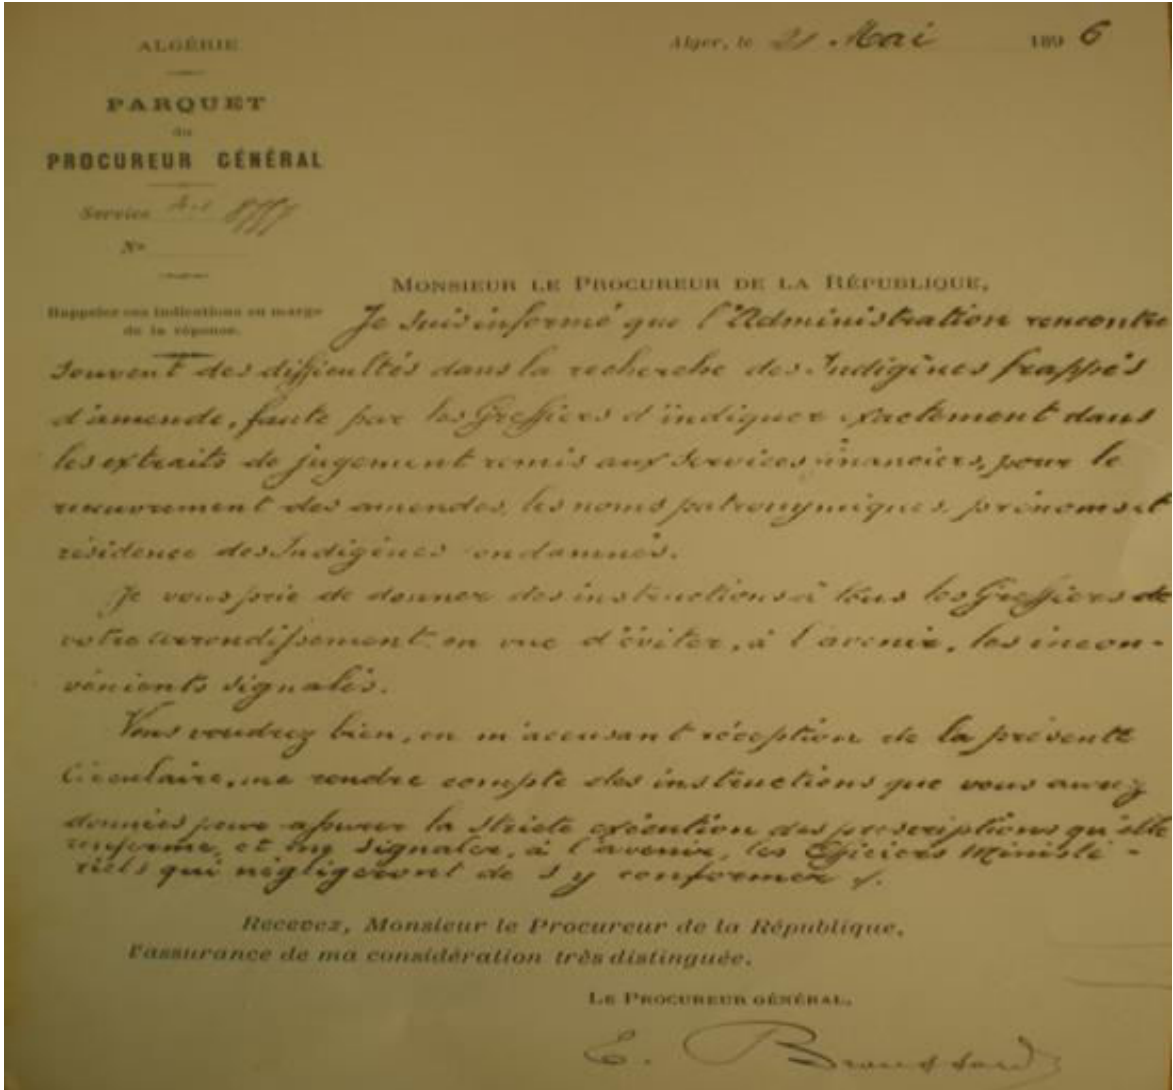 ALGÉRIE
Alger, le 21 Mai 1896
PARQUET
du
PROCUREUR GÉNÉRAL
Service
No
MONSIEUR LE PROCUREUR DE LA RÉPUBLIQUE,
Rappeler ces indications en marge
de la réponse.
Je suis informé que l'Administration rencontre
souvent des difficultés dans la recherche des Indigènes frappés
d'amende, faute par les Greffiers d'indiquer exactement dans
les extraits de jugement remis aux services financiers, pour le
recouvrement des amendes, les noms patronymiques, prénoms et
résidence des Indigènes condamnés.
Je vous prie de donner des instructions à tous les Greffiers de
votre arrondissement en vue d'éviter, à l'avenir, les incon-
vénients signalés.
Vous voudrez bien, en m'accusant réception de la présente
Circulaire, me rendre compte des instructions que vous aurez
données pour assurer la stricte exécution des prescriptions qu'elle
renferme, et me signaler, à l'avenir, les Officiers Ministé-
riels qui négligeront de s'y conformer ./.
Recevez, Monsieur le Procureur de la République,
l'assurance de ma considération très distinguée.
LE PROCUREUR GÉNÉRAL,
E. Broussard